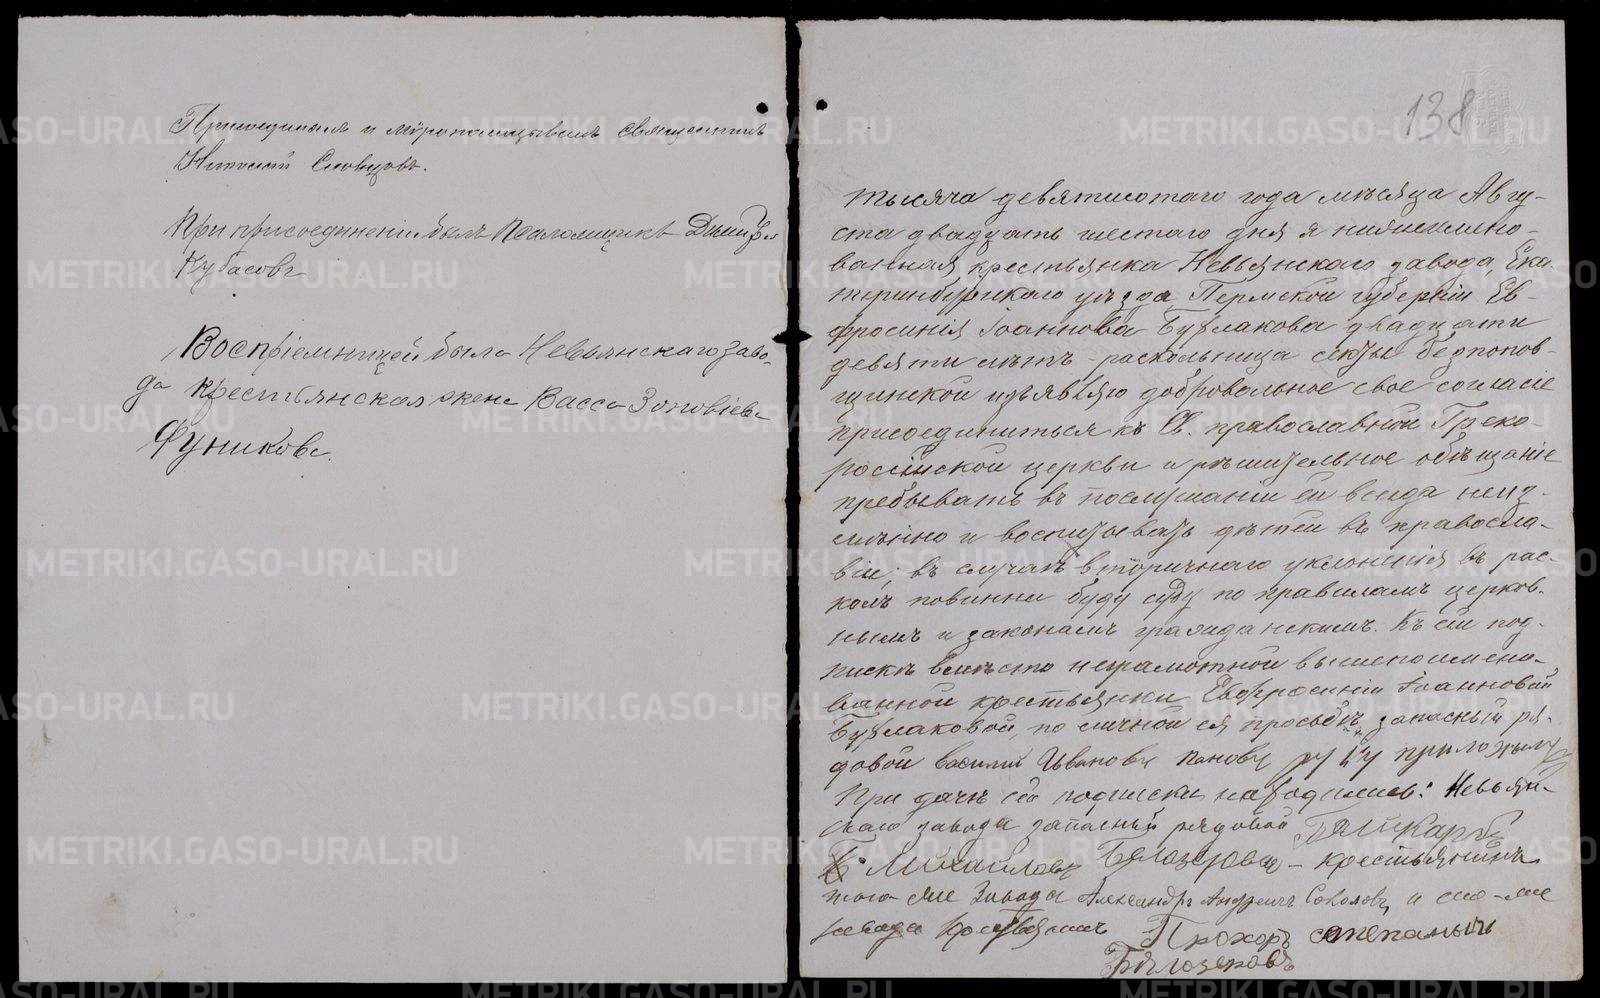 Присоединялъ и мѵропомазывалъ священникъ
Николай Словцовъ.
При присоединеніи былъ Псаломщикъ Димитрій
Кубасовъ
Воспріемницей была Невьянскаго заво-
да крестьянская жена Васса Зоновіева
Фуникова.
138
тысяча девятисотаго года мѣсяца Авгу-
ста двадцать шестаго дня я нижеимено-
ванная крестьянка Невьянскаго завода, Ека
теринбургскаго уѣзда, Пермской губерніи Ев-
фросинія Іоаннова Бурлакова двадцати
девяти лѣтъ - раскольница секты безпопов-
щинской изъявляю добровольное свое согласіе
присоединиться къ Св. православной Греко-
россійской церкви и рѣшительное обѣщаніе
пребывать въ послушаніи ей всегда неиз-
мѣнно и воспитывать дѣтей въ правосла-
віи; въ случаѣ вторичнаго уклоненія въ рас-
колъ повинна буду суду по правиламъ церков-
нымъ и законамъ гражданскимъ. Къ сей под-
пискѣ вмѣсто неграмотной вышепоимено-
ванной крестьянки Евфросиніи Іоанновой
Бурлаковой, по личной ея просьбѣ, запасный ря-
довой василий Ивановъ Пановъ руку приложилъ
При дачѣ сей подписки находились: Невьян-
скаго завода запасный рядовой
Михайловъ Белозеровъ - крестьянинъ
того-же Завода Александръ Андреичъ Соколовъ, и того-же
завода Крестьянинъ Прохоръ степанычь
Бѣлозеровъ
METRIKI.GASO-URAL.RU